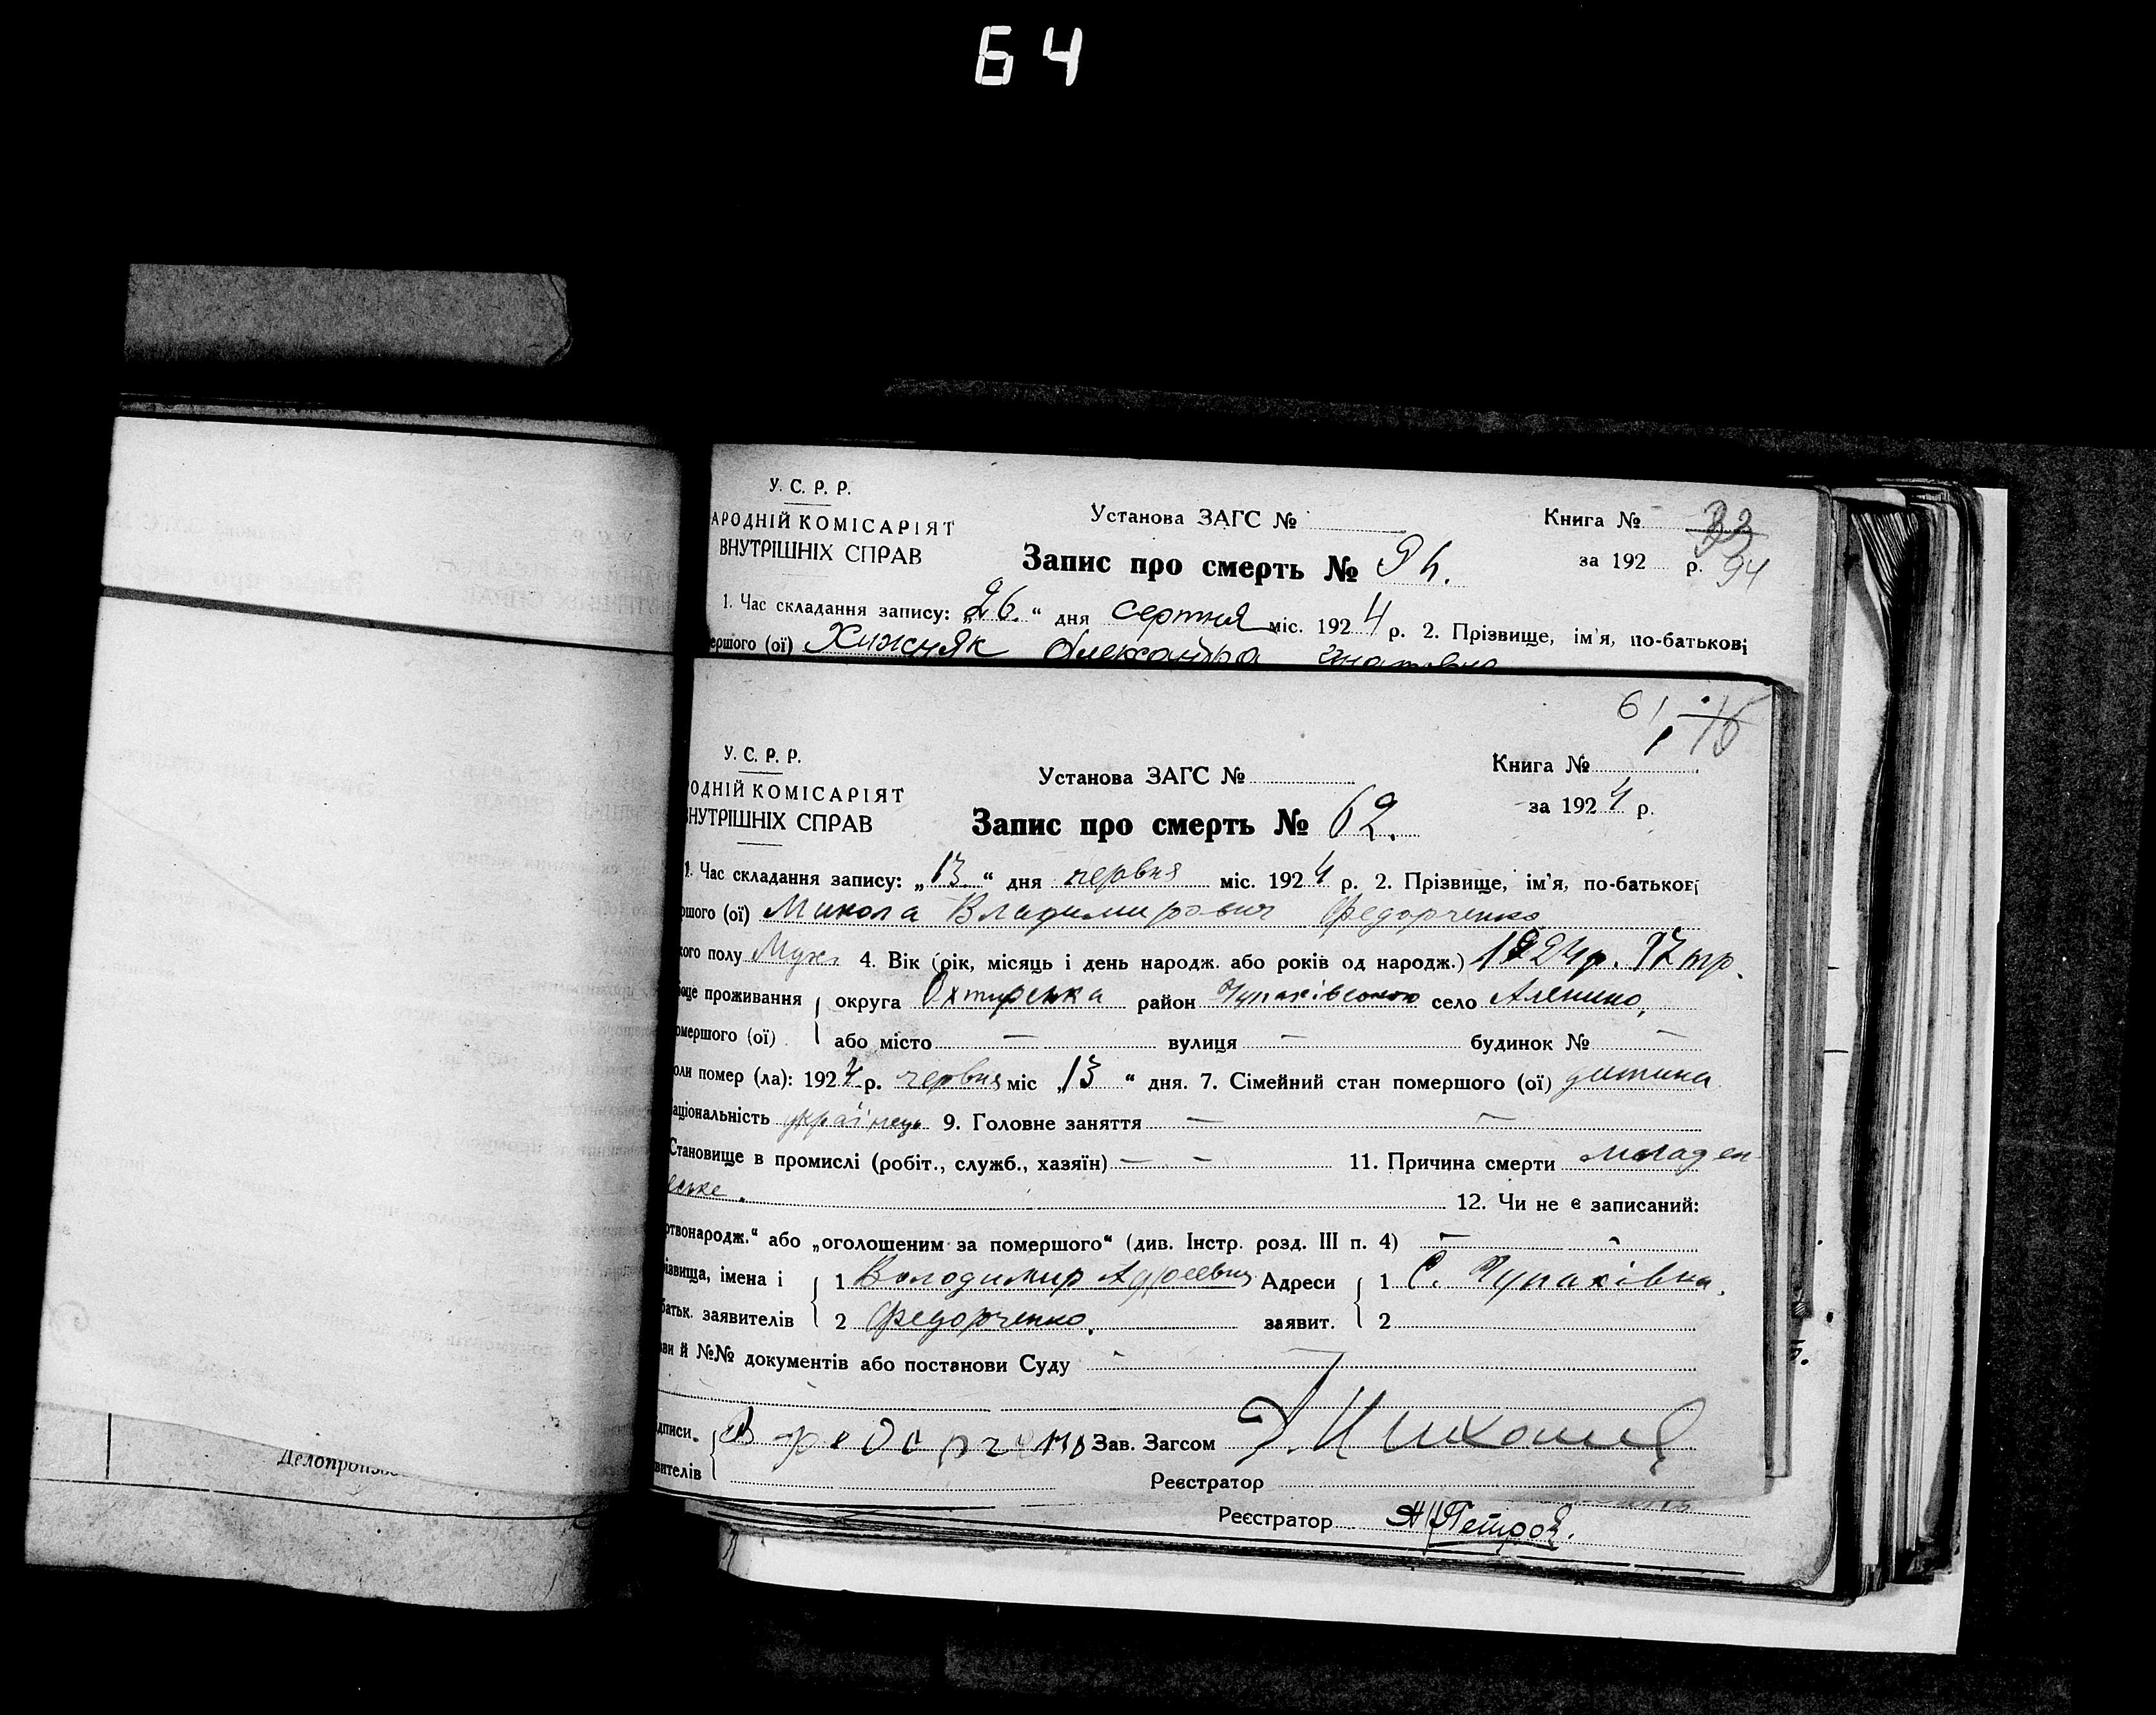 64
У. С. Р. Р.
АРОДНІЙ КОМІСАРІЯТ
ВНУТРІШНІХ СПРАВ
Установа ЗАГС №
Книга № 33
за 192 р. 94
Запис про смерть № 94.
1. Час складання запису: „26.“ дня серпня міс. 1924 р. 2. Прізвище, ім'я, по-батькові
ершого (ої) Хижняк Олександра
61
У. С. Р. Р.
ОДНІЙ КОМІСАРІЯТ
НУТРІШНІХ СПРАВ
Установа ЗАГС №
Книга №
за 1924 р.
Запис про смерть № 62.
1. Час складання запису: „13“ дня червня міс. 1924 р. 2. Прізвище, ім'я, по-батькові
ршого (ої) Микола Владимирович Федорченко
кого полу Муж. 4. Вік (рік, місяць і день народж. або років од народж.) 1924р. 17 тр.
сце проживання округа Охтирська район Чупахівського село Аленино,
омершого (ої) або місто — вулиця — будинок № —
оли помер (ла): 1924 р. червня міс „13“ дня. 7. Сімейний стан помершого (ої) дитина
аціональність українець 9. Головне заняття — —
Становище в промислі (робіт., служб., хазяїн) — — 11. Причина смерти младен-
еське. 12. Чи не є записаний:
ртвонародж.“ або „оголошеним за помершого“ (див. Інстр. розд. III п. 4) — —
ізвища, імена і 1 Володимир Адреевич Адреси 1 С. Чупахівка.
батьк. заявителів 2 Федорченко. заявит. 2
ви й №№ документів або постанови Суду —
дписи. Зав. Загсом
вителів
Реєстратор
Реєстратор Петров.
Делопроизво